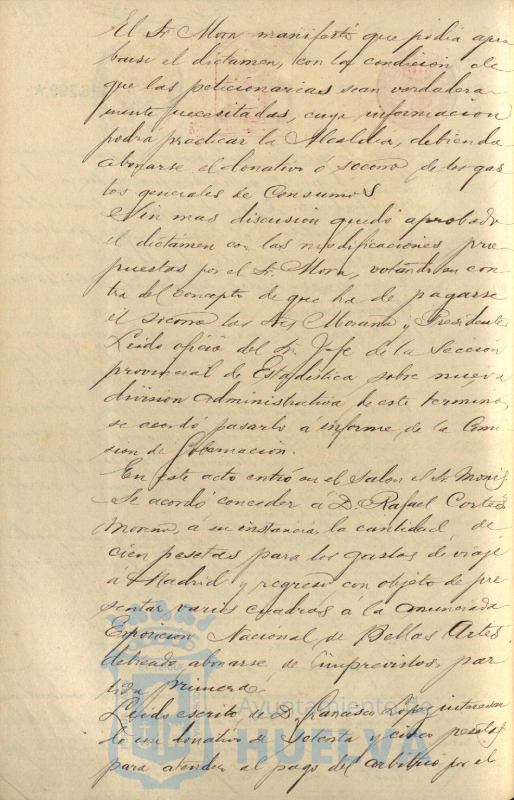 El Sr. Mora manifestó que podia apro
barse el dictámen, con la condicion de
que las peticionarias sean verdadera
mente necesitadas, cuya informacion
podrá practicar la Alcaldia, debiendo
abonarse el donativo ó socorro de los gas
tos generales de Consumos
Sin mas discusion quedó aprobado
el dictámen con las modificaciones pro
puestas por el Sr. Mora, votando en con
tra del concepto de que ha de pagarse
el socorro los Sres Moraña y Presidente
Leido oficio del Sr. Jefe de la Seccion
provincial de Estadistica sobre nueva
division administrativa de este termino,
se acordó pasarlo a informe de la Comi
sion de Gobernacion.
En este acto entró en el Salon el Sr.
Se acordó conceder á D. Rafael Cortés
Moreno, á su instancia, la cantidad de
cien pesetas para los gastos de viaje
a Madrid y regreso con objeto de pre
sentar varios cuadros a la anunciada
Exposicion Nacional de Bellas Artes
debiendo abonarse de Imprevistos, par
tida primera.
Leido escrito de D. Francisco Lopez interesan
do un donativo de Setenta y cinco pesetas
para atender al pago del arbitrio por el
Ayuntamiento de
HUELVA